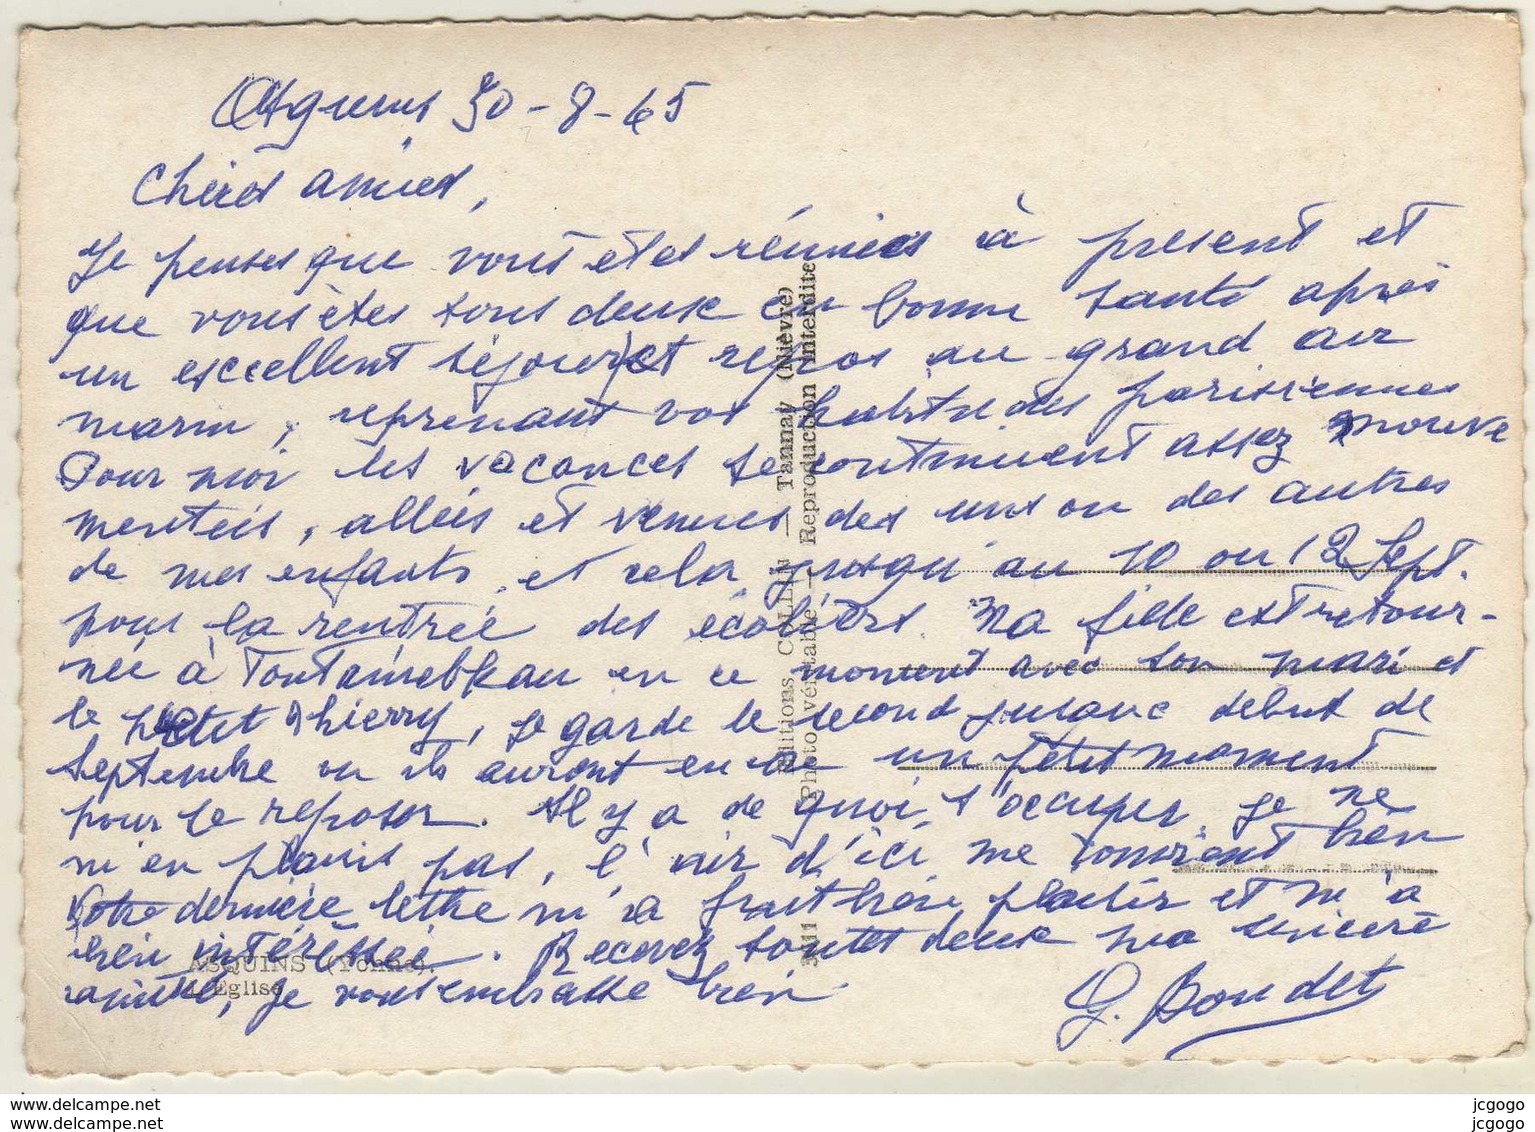 Asquins 30-8-65
Chères amies,
Je penses que vous êtes réunies à présent et
que vous êtes tous deux en bonne santé après
un excellent séjour et repos au grand air
marin, reprenant vos habitudes parisiennes
Pour moi les vacances se continuent assez mouve
mentées, allées et venues des uns ou des autres
de mes enfants et cela jusqu'au 10 ou 12 Sept.
pour la rentrée des écoliers. Ma fille est retour-
née à Fontainebleau en ce moment avec son mari et
le petit Thierry, je garde le second jusque début de
Septembre où ils auront encore un petit moment
pour se reposer. Il y a de quoi s'occuper je ne
m'en plains pas, l'air d'ici me convient bien
Votre dernière lettre m'a fait bien plaisir et m'a
bien intéressée. Recevez toutes deux ma sincère
amitié, je vous embrasse bien.
G. Boudet
ASQUINS (Yonne).
L'Eglise
Editions COLLIN — Tannay (Nièvre)
Photo véritable — Reproduction interdite
www.delcampe.net
www.delcampe.net
jcgogo
jcgogo